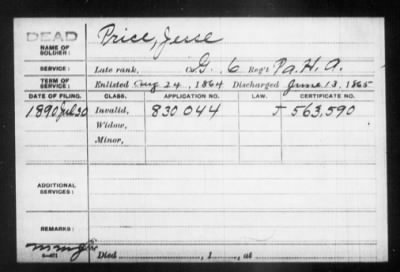 DEAD
NAME OF SOLDIER: Price, Jesse
SERVICE: Late rank, Co. G. 6 Reg't Pa. H. A.
TERM OF SERVICE: Enlisted Aug 24, 1864 Discharged June 13, 1865
DATE OF FILING. CLASS. APPLICATION NO. LAW. CERTIFICATE NO.
1890 Jul 30 Invalid, 830044 J 563,590
Widow,
Minor,
ADDITIONAL SERVICES:
REMARKS:
Died , 1 , at